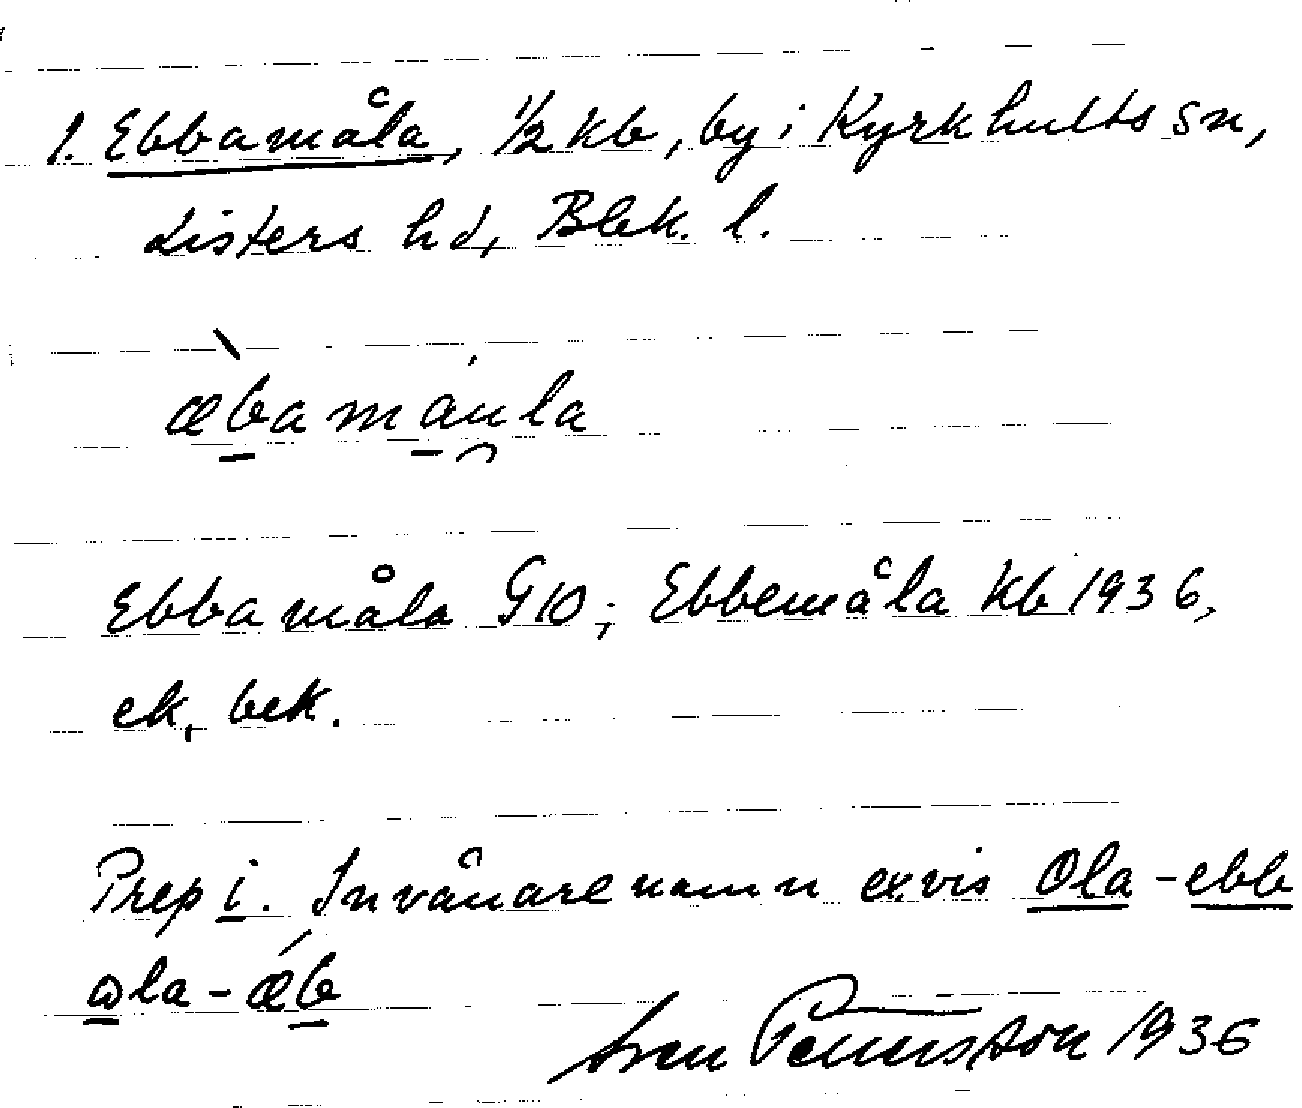 1. Ebbamåla, 1/2 kb, by i Kyrkhults sn,
Listers hd, Blek. l.
æ̀bamáu̯la
Ebbamåla G10; Ebbemåla kb 1936,
ek, bek.
Prep i. Invånarenamn ex.vis Ola-ebb
ωla-ǽb
Sven Pettersson 1936